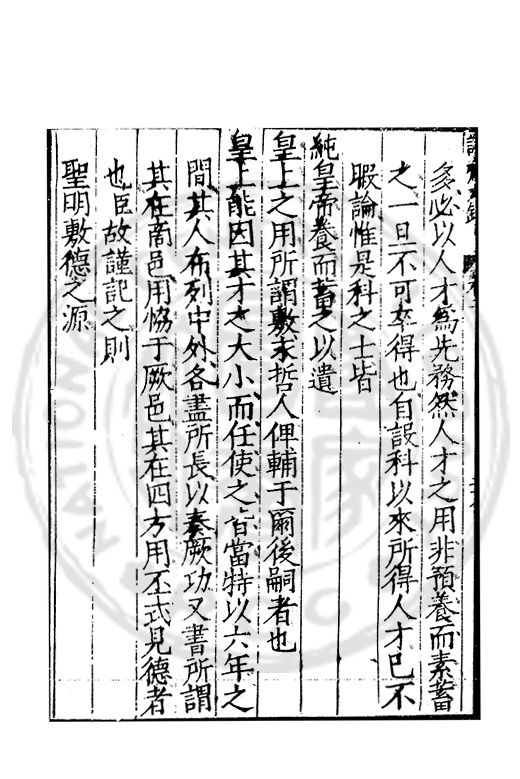 多必以人才為先務然人才之用非預養而素蓄
之一旦不可卒得也自設科以來所得人才已不
暇論惟是科之士皆
純皇帝養而蓄之以遺
皇上之用所謂敷求哲人俾輔于爾後嗣者也
皇上能因其才之大小而任使之皆當特以六年之
間其人布列中外各盡所長以奏厥功又書所謂
其在商邑用恊于厥邑其在四方用丕式見德者
也臣故謹記之則
聖明敷德之源
NATION